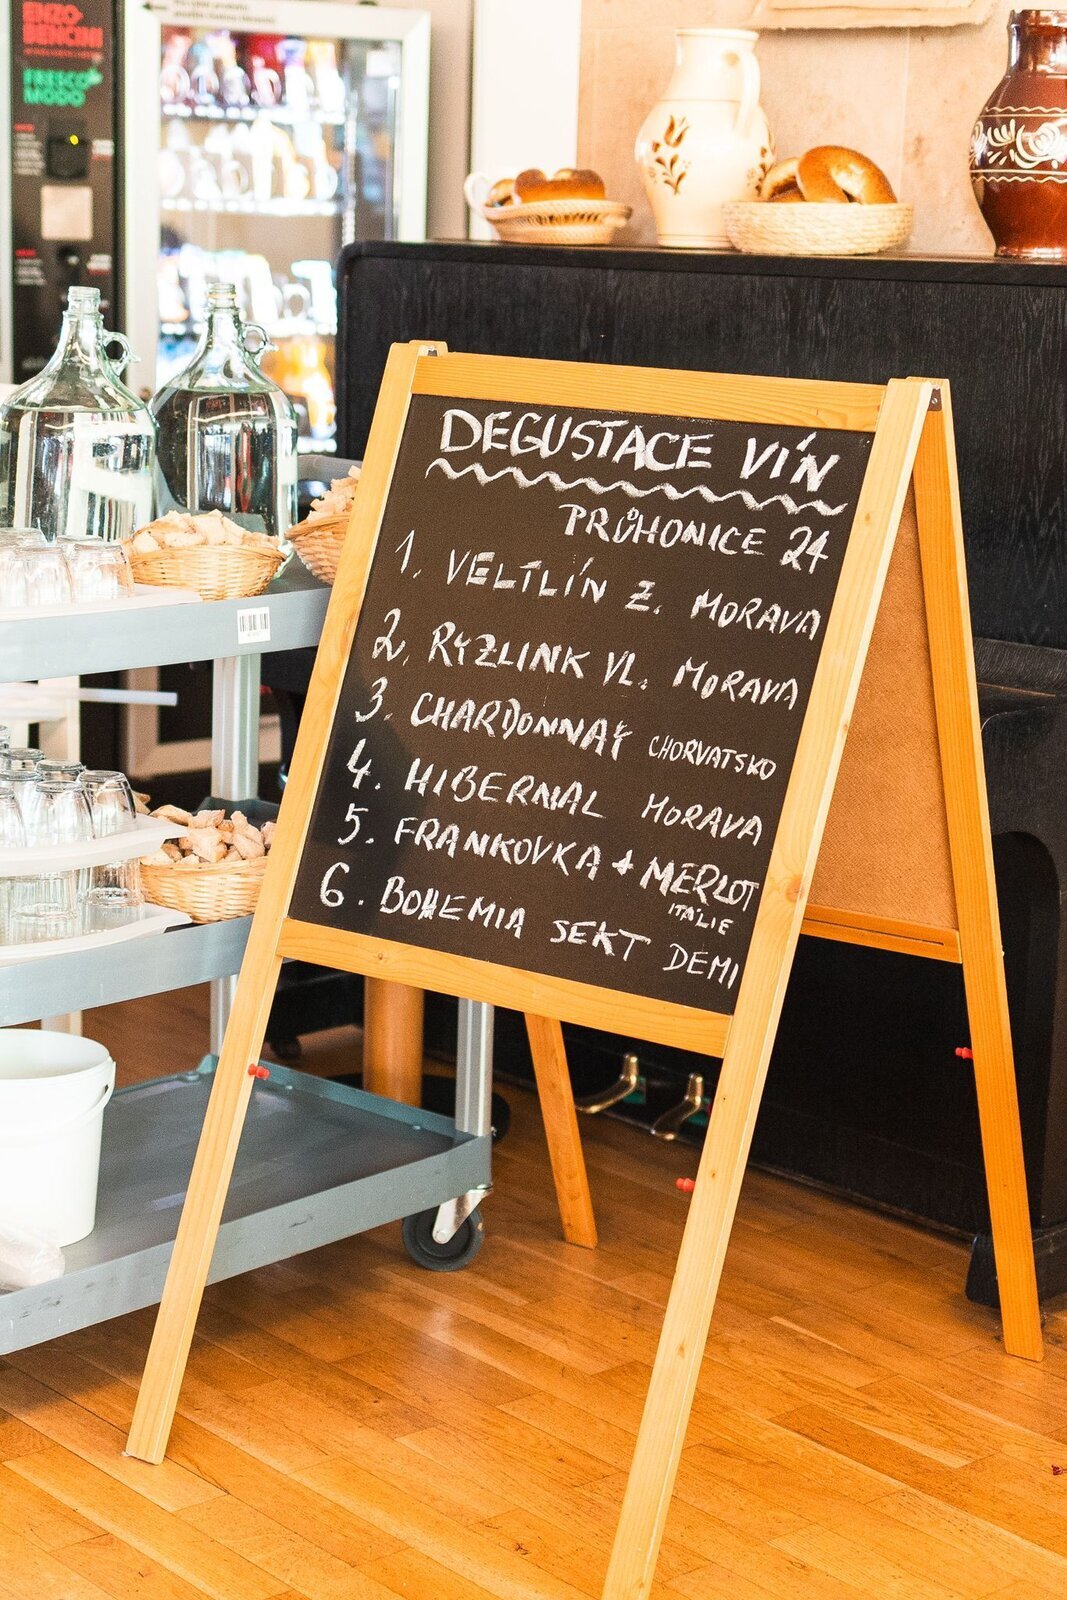 ENZO
BENCINI
FRESCO
MODO
DEGUSTACE VÍN
PRŮHONICE 24
1. VELTLÍN Z. MORAVA
2. RYZLINK VL. MORAVA
3. CHARDONNAY CHORVATSKO
4. HIBERNAL MORAVA
5. FRANKOVKA + MERLOT
ITÁLIE
6. BOHEMIA SEKT DEMI